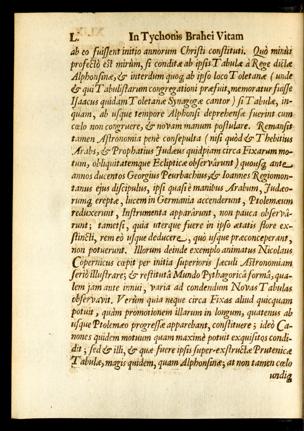 L. In Tychonis Brahei Vitam
ab eo fuissent initio annorum Christi constituti. Quò minùs
profectò est mirùm, si conditæ ab ipsis Tabulæ à Rege dictæ
Alphonsinæ, & interdum quoq; ab ipso loco Toletanæ (unde
& qui Tabulistarum congregationi præfuit, memoratur fuisse
Isaacus quidam Toletanæ Synagogæ cantor) si Tabulæ, in-
quam, ab usque tempore Alphonsi deprehensæ fuerint cum
cœlo non congruere, & novam manum postulare. Remansit
tamen Astronomia penè consepulta (nisi quòd & Thebitius
Arabs, & Prophatius Judæus quidpiam circa Fixarum mo-
tum, obliquitatemque Eclipticæ observârunt) quousq; ante
annos ducentos Georgius Peurbachius, & Ioannes Regiomon-
tanus ejus discipulus, ipsi quasi è manibus Arabum, Judæo-
rumq; ereptæ, lucem in Germania accenderunt, Ptolemæum
reduxerunt, Instrumenta apparârunt, non pauca observâ-
runt; tametsi, quia uterque fuere in ipso ætatis flore ex-
stincti, rem eò usque deducere, quò usque præconceperant,
non potuerunt. Illorum deinde exemplo animatus Nicolaus
Copernicus cœpit per initia superioris sæculi Astronomiam
seriò illustrare; & restitutâ Mundo Pythagoricâ formâ, qua-
lem jam ante innui, varia ad condendum Novas Tabulas
observavit. Verùm quia neque circa Fixas aliud quicquam
potuit, quàm promotionem illarum in longum, quatenus ab
usque Ptolemæo progressæ apparebant, constituere; ideò Ca-
nones quidem motuum quam maximè potuit exquisitos condi-
dit; sed & illi, & quæ fuere ipsis super-exstructæ Prutenicæ
Tabulæ, magis quidem, quam Alphonsinæ; at non tamen cœlo
undiq